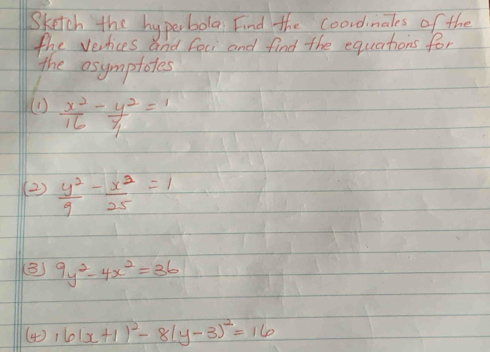 Sketch the hyperbola. Find the coordinates of the
the vertices and foci and find the equations for
the asymptotes
(1) x²/16 - y²/4 = 1
(2) y²/9 - x²/25 = 1
(3) 9y² - 4x² = 36
(4) 16(x+1)² - 8(y-3)² = 16